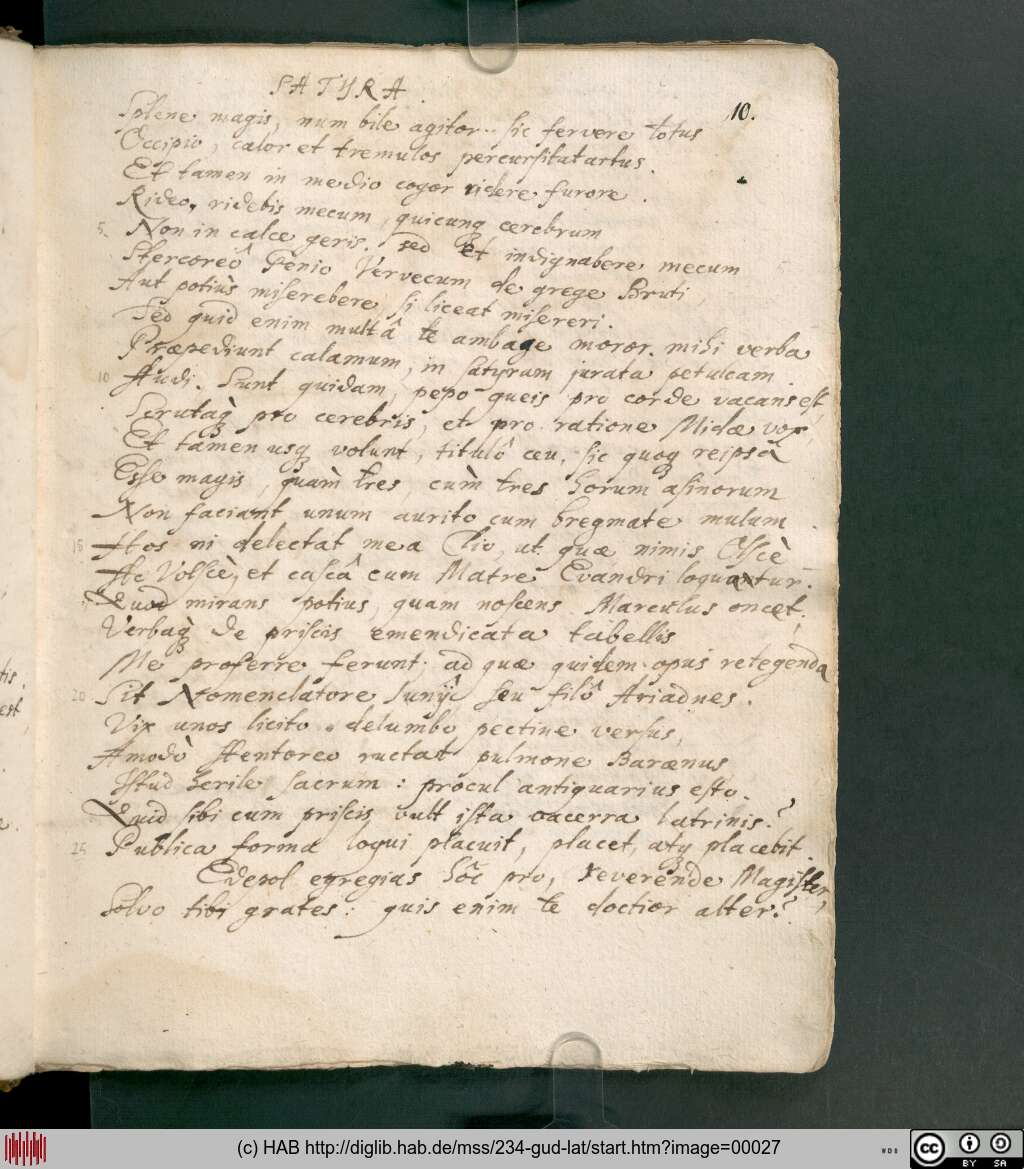 SATYRA.
10.
Splene magis, num bile agitor.. sic fervere totus
Occipio, calor et tremulos percursitat artus.
Et tamen in medio cogor ridere furore.
Rideo, ridebis mecum, quicunq cerebrum
5. Non in calce geris. sed et indignabere mecum
Stercoreô Genio Vervecum de grege Bruti,
Aut potiùs miserebere, si liceat misereri.
Sed quid enim multâ te ambage moror. mihi verba
Præpediunt calamum, in satyram jurata petulcam.
10 Audi. Sunt quidam, pepo queis pro corde vacans est,
Scrutaq pro cerebris, et pro ratione Midæ vox,
Et tamen usq volunt, titulô ceu, sic quoq reipsâ
Esse magis, quàm tres, cùm tres horum asinorum
Non faciant unum aurito cum bregmate mulum.
15 Hos ni delectat mea Clio, ut quæ nimis Oscè
Ac Volscè, et cascâ cum Matre Evandri loquatur.
Quod mirans potius, quam noscens Marculus oncet,
Verbaq de priscis emendicata tabellis
Me proferre ferunt. ad quæ quidem opus retegenda
20 Sit Nomenclatore Sunijc seu filô Ariadnes.
Vix unos licito delumbo pectine versus,
Amodò Stentoreo ructat pulmone Baræenus
Istud herile sacrum: procul antiquarius esto.
Quid sibi cum priscis vult ista vacerra latrinis?
25 Publica forma loqui placuit, placet, atq placebit.
Edepol egregias hôc pro, reverende Magister,
Solvo tibi grates: quis enim te doctior alter?
tis.
est
(c) HAB http://diglib.hab.de/mss/234-gud-lat/start.htm?image=00027
cc BY SA